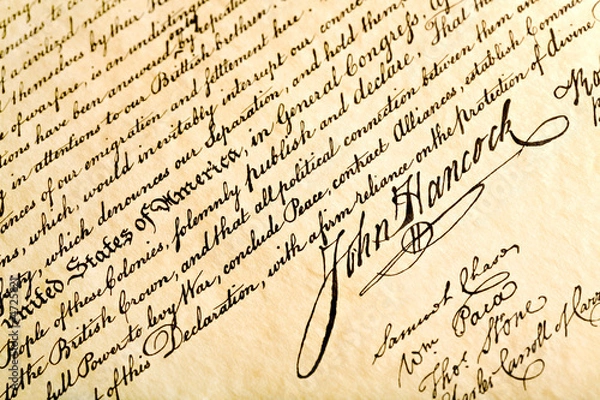 of a civilized nation
themselves by their Ha
of warfare, is an undistinguis
only
tions have been answered by repeate
in attentions to our Brittish brethren.
ances of our emigration and settlement here.
ns, which, would inevitably interrupt our connec
y, which denounces our Separation, and hold them,
United States of America, in General Congress, A
ople of these Colonies, solemnly publish and declare, That the
the British Crown, and that all political connection between them an
full Power to levy War, conclude Peace, contract Alliances, establish Comme
t of this Declaration, with a firm reliance on the protection of divine
John Hancock
Samuel Chase
Wm Paca
Thos. Stone
Charles Carroll of Carro